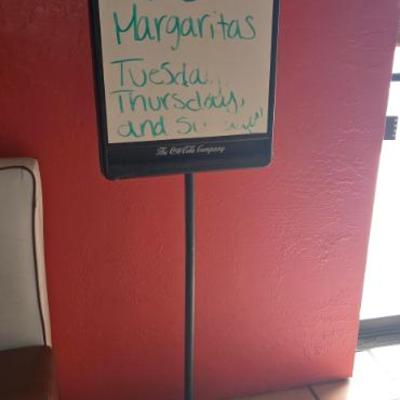 Margaritas
Tuesda
Thursday,
and
The Coca-Cola Company